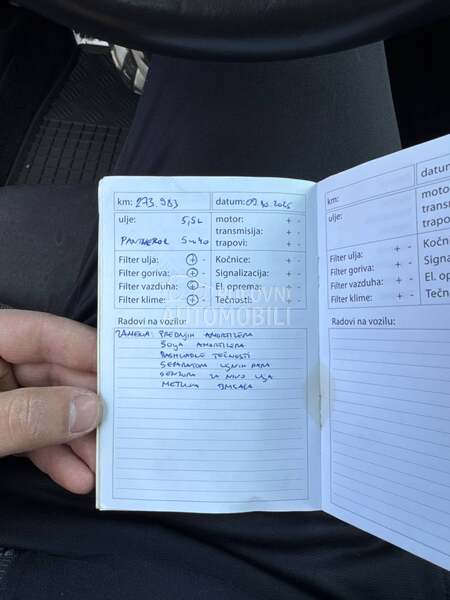 km: 273.983 datum: 09.10.2025
ulje: 5,5L motor: + -
transmisija: + -
PANTHEROL 5W40 trapovi: + -
Filter ulja: + - Kočnice: + -
Filter goriva: + - Signalizacija: + -
Filter vazduha: + - El. oprema: + -
Filter klime: + - Tečnosti: + -
Radovi na vozilu:
ZAMENA: PREDNJIH AMORTIZERA
AMORTIZERA
RASHLADNE TEČNOSTI
SEPARATORA ULJNIH PARA
SENZORA ZA NIVO ULJA
METLICA BRISAČA
km: datum
ulje: motor
transm
trapovi
Filter ulja: + - Kočn
Filter goriva: + - Signa
Filter vazduha: + - El. op
Filter klime: + - Tečn
Radovi na vozilu:
POLOVNI
AUTOMOBILI